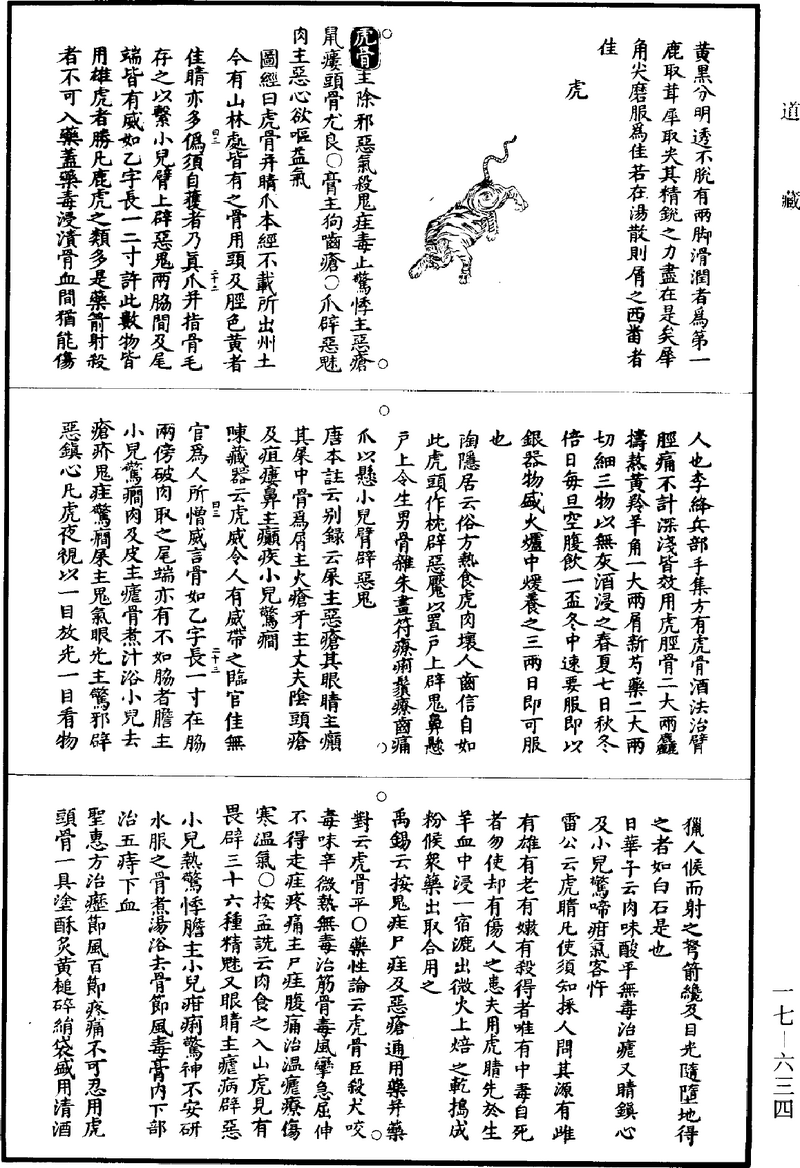 道藏
黃黑分明透不脫有兩脚滑潤者爲第一
鹿取茸犀取尖其精銳之力盡在是矣犀
角尖磨服爲佳若在湯散則屑之西蕃者
佳
虎
虎骨主除邪惡氣殺鬼疰毒止驚悸主惡瘡
鼠瘻頭骨尤良○膏主狗嚙瘡○爪辟惡魅
肉主惡心欲嘔益氣
圖經曰虎骨并睛爪本經不載所出州土
今有山林處皆有之骨用頭及脛色黃者
佳睛亦多僞須自獲者乃眞爪并指骨毛
存之以繫小兒臂上辟惡鬼兩脇間及尾
端皆有威如乙字長一二寸許此數物皆
用雄虎者勝凡鹿虎之類多是藥箭射殺
者不可入藥蓋藥毒浸漬骨血間猶能傷
人也李絳兵部手集方有虎骨酒法治臂
脛痛不計深淺皆效用虎脛骨二大兩麤
擣熬黃羚羊角一大兩屑新芍藥二大兩
切細三物以無灰酒浸之春夏七日秋冬
倍日每旦空腹飮一盃冬中速要服即以
銀器物盛火爐中煖養之三兩日即可服
也
陶隱居云俗方熱食虎肉壞人齒信自如
此虎頭作枕辟惡魘以置戶上辟鬼鼻懸
戶上令生男骨雜朱畫符療痢鬚療齒痛
爪以懸小兒臂辟惡鬼
唐本註云别錄云屎主惡瘡其眼睛主癲
其屎中骨爲屑主火瘡牙主丈夫陰頭瘡
及疽瘻鼻主癲疾小兒驚癇
陳藏器云虎威令人有威帶之臨官佳無
官爲人所憎威言骨如乙字長一寸在脇
兩傍破肉取之尾端亦有不如脇者膽主
小兒驚癇肉及皮主瘧骨煮汁浴小兒去
瘡疥鬼疰驚癇屎主鬼氣眼光主驚邪辟
惡鎮心凡虎夜視以一目放光一目看物
獵人候而射之弩箭纔及目光隨墮地得
之者如白石是也
日華子云肉味酸平無毒治瘧又睛鎮心
及小兒驚啼疳氣客忤
雷公云虎睛凡使須知採人問其源有雌
有雄有老有嫩有殺得者唯有中毒自死
者勿使却有傷人之患夫用虎睛先於生
羊血中浸一宿漉出微火上焙之乾搗成
粉候衆藥出取合用之
禹錫云按鬼疰尸疰及惡瘡通用藥并藥
對云虎骨平○藥性論云虎骨臣殺犬咬
毒味辛微熱無毒治筋骨毒風攣急屈伸
不得走疰疼痛主尸疰腹痛治温瘧療傷
寒温氣○按孟詵云肉食之入山虎見有
畏辟三十六種精魅又眼睛主瘧病辟惡
小兒熱驚悸膽主小兒疳痢驚神不安研
水服之骨煮湯浴去骨節風毒膏内下部
治五痔下血
聖惠方治歷節風百節疼痛不可忍用虎
頭骨一具塗酥炙黃槌碎絹袋盛用清酒
一七—六三四